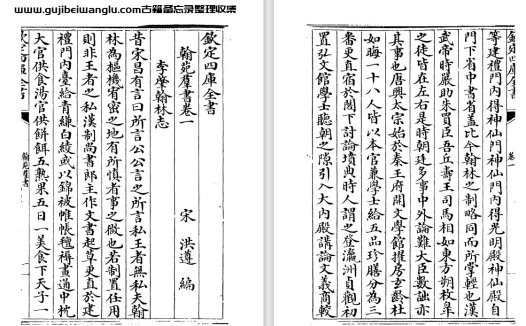 www.gujibeiwanglu.com古籍备忘录整理收集
欽定四庫全書
翰苑羣書卷一
宋 洪遵 編
李肇翰林志
昔宋昌有言曰所言公公言之所言私王者無私夫翰
林為樞機宥密之地有所慎者事之微也若制置任用
則非王者之私漢制尚書郎主作文書起草更直於建
禮門內臺給青縑白綾或以錦被帷帳氊褥畫通中枕
大官供食湯官供餅餌五熟果五日一美食下天子一
翰苑羣書
www.gujibeiwanglu.com古籍备忘录整理收集
欽定四庫全書
卷一
等建禮門內得神仙門神仙門內得光明殿神仙殿自
門下省中書省蓋比今翰林之制略同而所掌輕也漢
武帝時嚴助朱買臣吾丘壽王司馬相如東方朔枚皋
之徒皆在左右是時朝廷多事中外論難大臣數詘亦
其事也唐興太宗始於秦王府開文學館擢房玄齡杜
如晦一十八人皆以本官兼學士給五品珍膳分為三
番更直宿於閣下討論墳典時人謂之登瀛洲貞觀初
置弘文館學士聽朝之隙引入大內殿講論文義商較